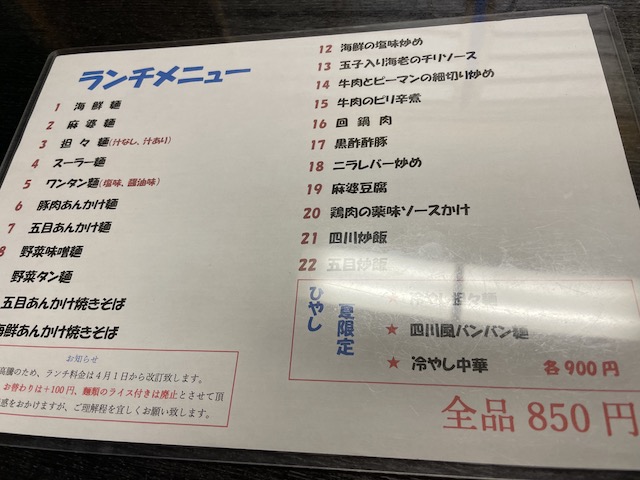 ランチメニュー
1 海鮮麺
2 麻婆麺
3 担々麺(汁なし、汁あり)
4 スーラー麺
5 ワンタン麺(塩味、醤油味)
6 豚肉あんかけ麺
7 五目あんかけ麺
8 野菜味噌麺
野菜タン麺
五目あんかけ焼きそば
海鮮あんかけ焼きそば
お知らせ
高騰のため、ランチ料金は4月1からか改訂致します。
お替わりは+100円、麺類のライス付きは廃止とさせて頂
惑をおかけますが、ご理解程を宜しくお願い致します。
12 海鮮の塩味炒め
13 玉子入り海老のチリソース
14 牛肉とピーマンの細切り炒め
15 牛肉のピリ辛煮
16 回鍋肉
17 黒酢酢豚
18 ニラレバー炒め
19 麻婆豆腐
20 鶏肉の薬味ソースかけ
21 四川炒飯
22 五目炒飯
夏限定
ひやし
★ 冷やし担々麺
★ 四川風バンバン麺
★ 冷やし中華 各900円
全品850円